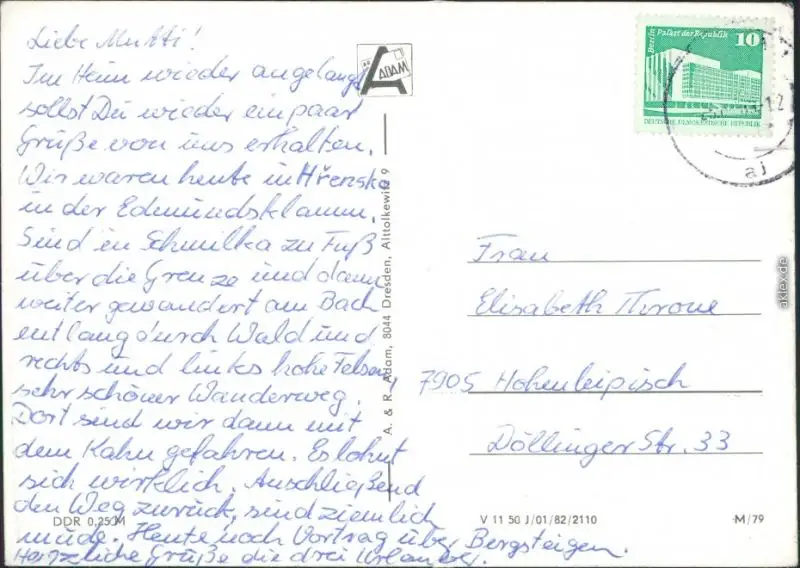 Liebe Mutti!
Im Heim wieder angelangt
sollst Du wieder ein paar
Grüße von uns erhalten.
Wir waren heute in Hřensko
in der Edmundsklamm.
Sind in Schmilka zu Fuß
über die Grenze und dann
weiter gewandert am Bach
entlang durch Wald und
rechts und links hohe Felsen,
sehr schöner Wanderweg.
Dort sind wir dann mit
dem Kahn gefahren. Es lohnt
sich wirklich. Anschließend
den Weg zurück, sind ziemlich
müde. Heute noch Vortrag über Bergsteigen.
Herzliche Grüße die drei Urlauber.
DDR 0,25 M
ADAM
A. & R. Adam, 8044 Dresden, Alttolkewitz 9
Berlin Palast der Republik 10
DEUTSCHE DEMOKRATISCHE REPUBLIK
aj
Frau
Elisabeth Throne
7905 Hohenleipisch
Döllinger Str. 33
V 11 50 J/01/82/2110
M/79
aklex.de